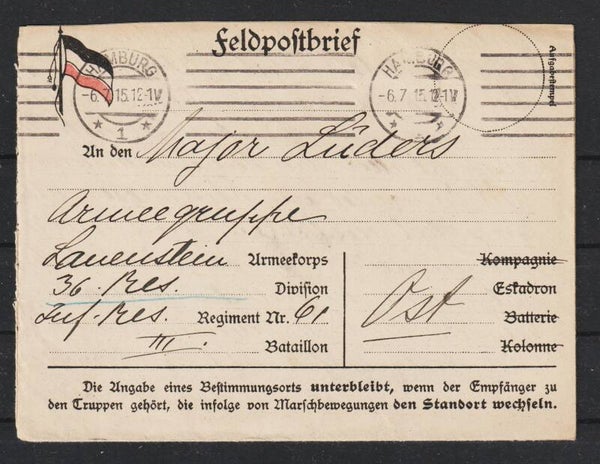 Feldpostbrief
HAMBURG
-6.7.15.12-1V
* 1 *
HAMBURG
-6.7.15.12-1V
Aufgabestempel
An den Major Lüders
Armeegruppe
Lauenstein Armeekorps
36. Res. Division
Inf. Res. Regiment Nr. 61
III. Bataillon
Kompagnie
Eskadron
Ost
Batterie
Kolonne
Die Angabe eines Bestimmungsorts unterbleibt, wenn der Empfänger zu
den Truppen gehört, die infolge von Marschbewegungen den Standort wechseln.